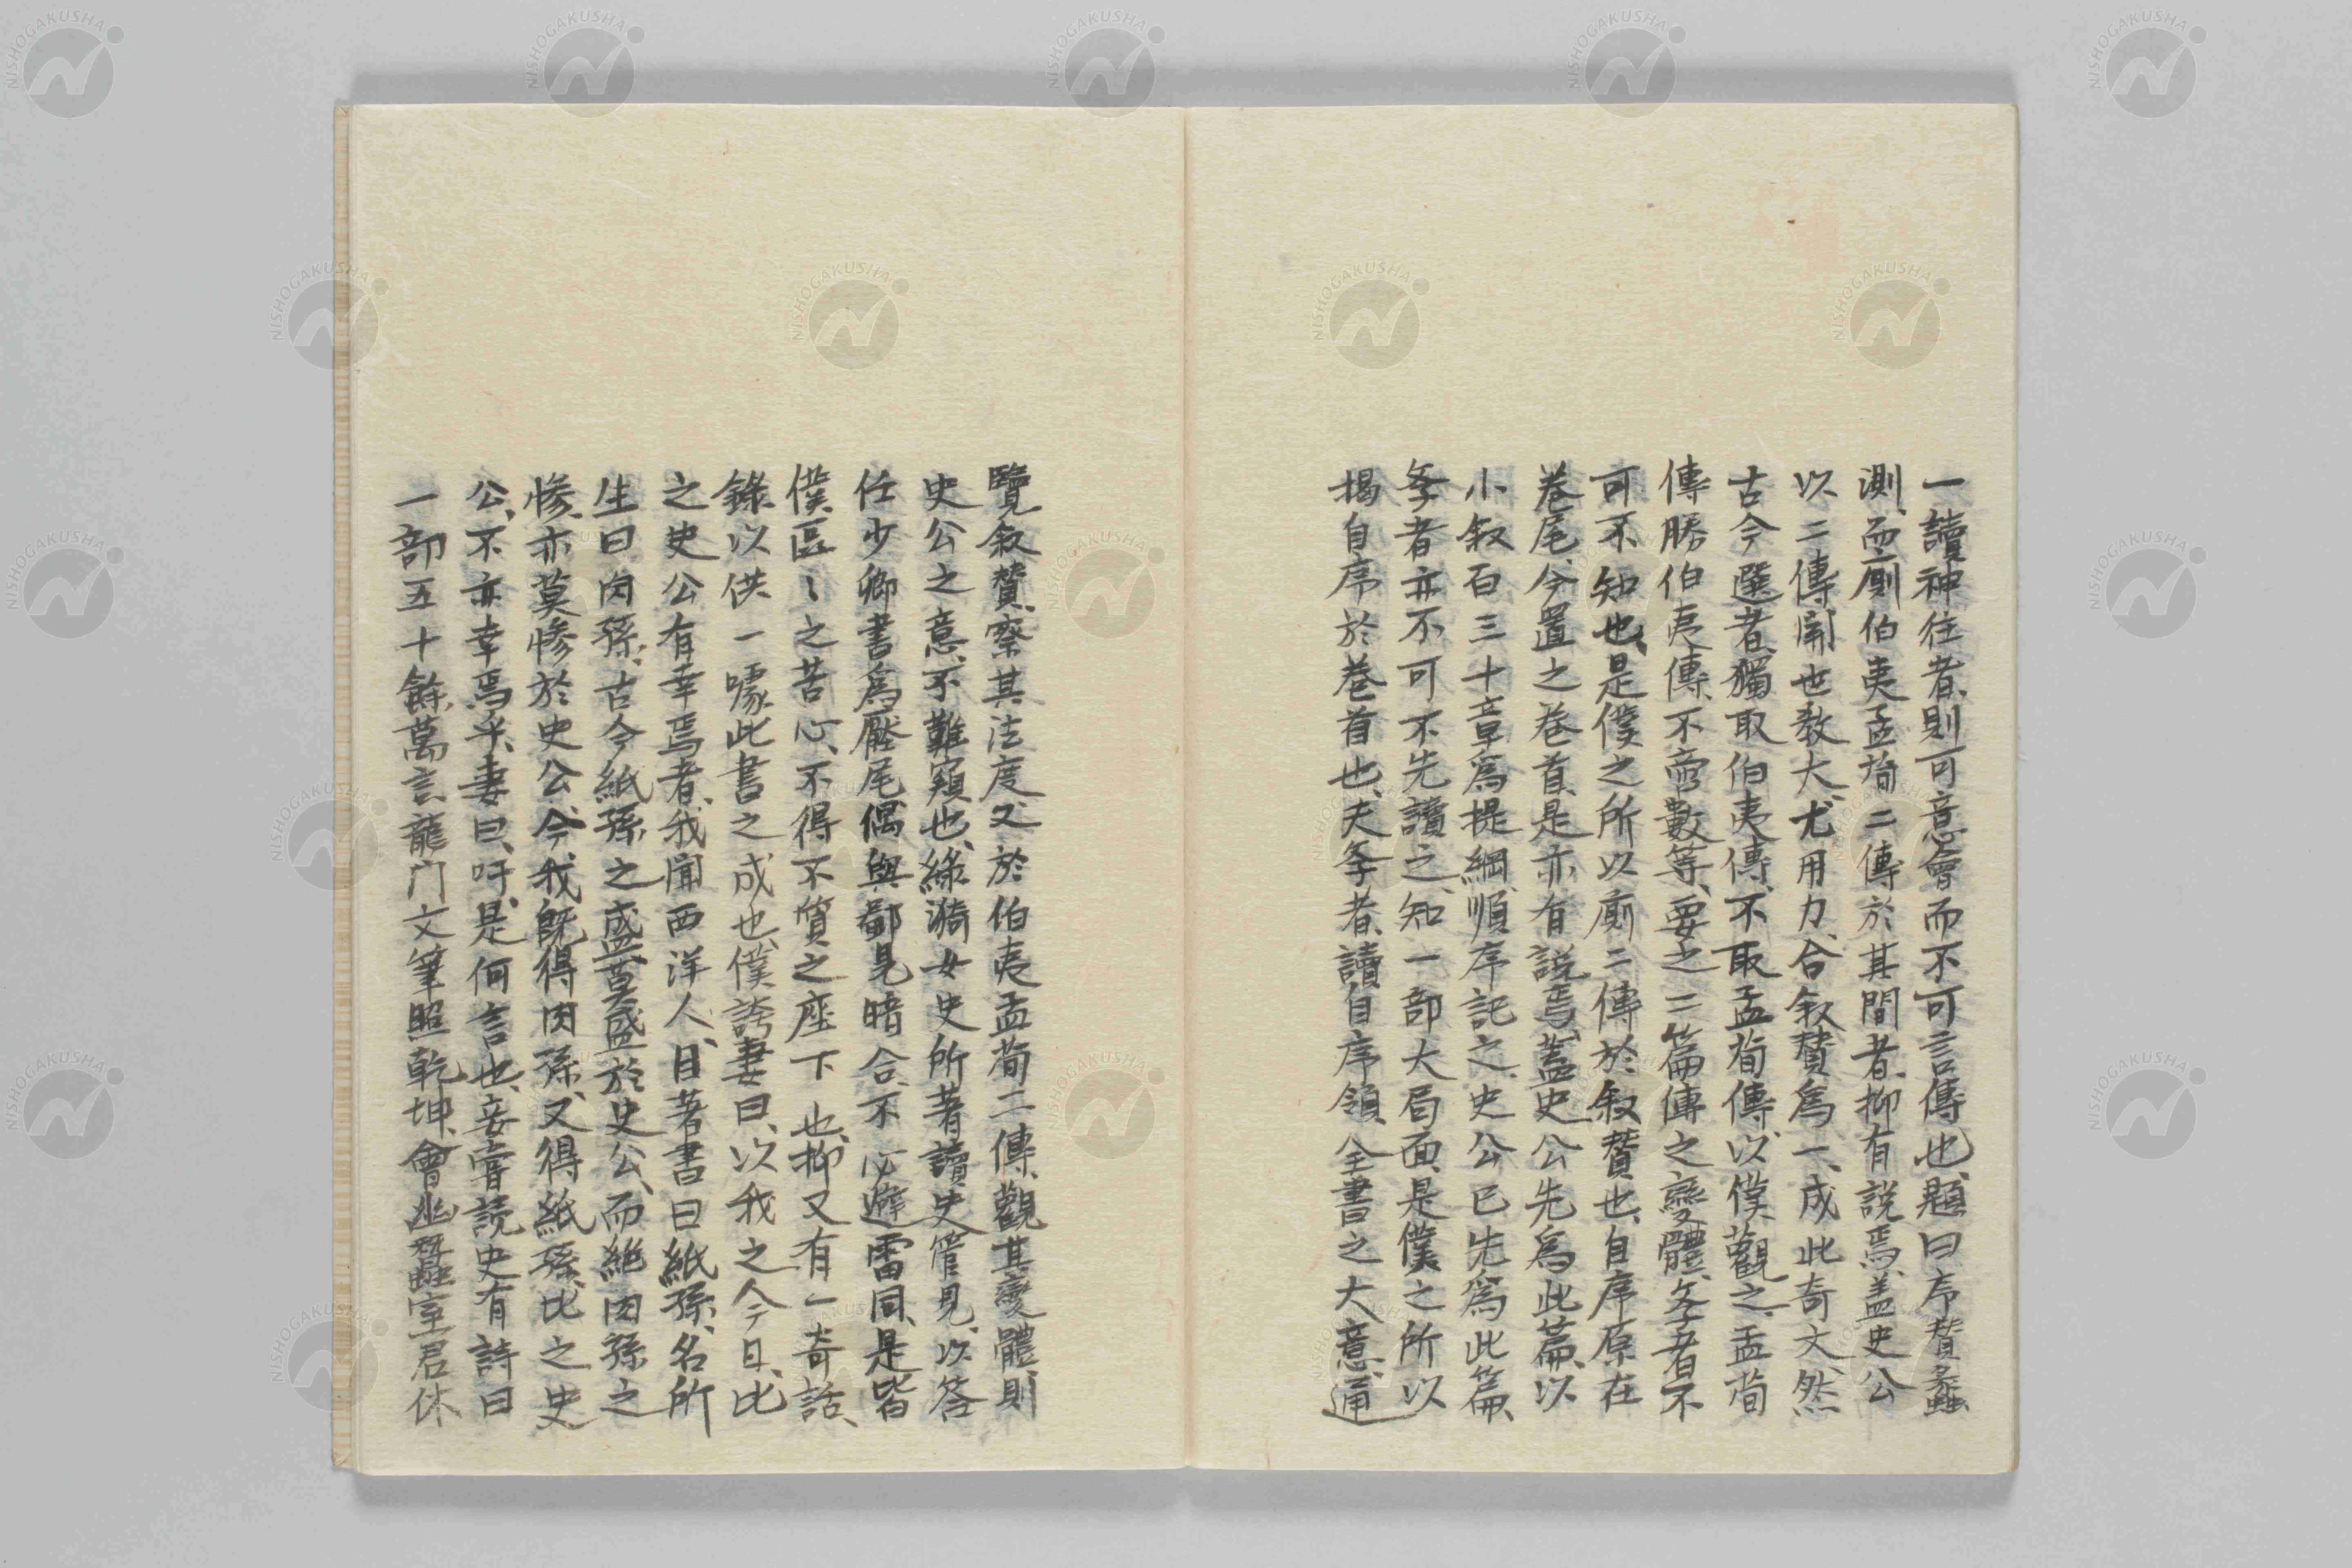 一讀神往者、則可意會而不可言傳也、題曰序贊蠡
測、而厠伯夷孟荀二傳於其間者、抑有説焉、盖史公
以二傳關世教大、尤用力、合叙贊爲一、成此奇文、然
古今選者、獨取伯夷傳、不取孟荀傳、以僕觀之、孟荀
傳勝伯夷傳、不啻數等、要之二篇傳之變體、学者不
可不知也、是僕之所以厠二傳於叙贊也、自序原在
卷尾、今置之卷首、是亦有説焉、蓋史公先爲此篇、以
小叙百三十章爲提綱、順序記之、史公已先爲此篇、
学者亦不可不先讀之、知一部大局面、是僕之所以
揭自序於卷首也、夫学者、讀自序領全書之大意、通
覽叙贊、察其法度、又於伯夷孟荀二傳、觀其變體、則
史公之意、不難窺也、綠漪女史所著讀史管見、以答
任少卿書爲壓尾、偶與鄙見暗合、不必避雷同、是皆
僕區〻之苦心、不得不質之座下也、抑又有一奇話、
錄以供一噱、此書之成也、僕誇妻曰、以我之今日、比
之史公、有幸焉者、我聞西洋人、目著書曰紙孫、名所
生曰肉孫、古今紙孫之盛、莫盛於史公、而絶肉孫之
慘、亦莫慘於史公、今我既得肉孫、又得紙孫、比之史
公、不亦幸焉乎、妻曰、吁、是何言也、妾嘗読史有詩曰
一部五十餘萬言、龍門文筆照乾坤、會逃蠶室君休